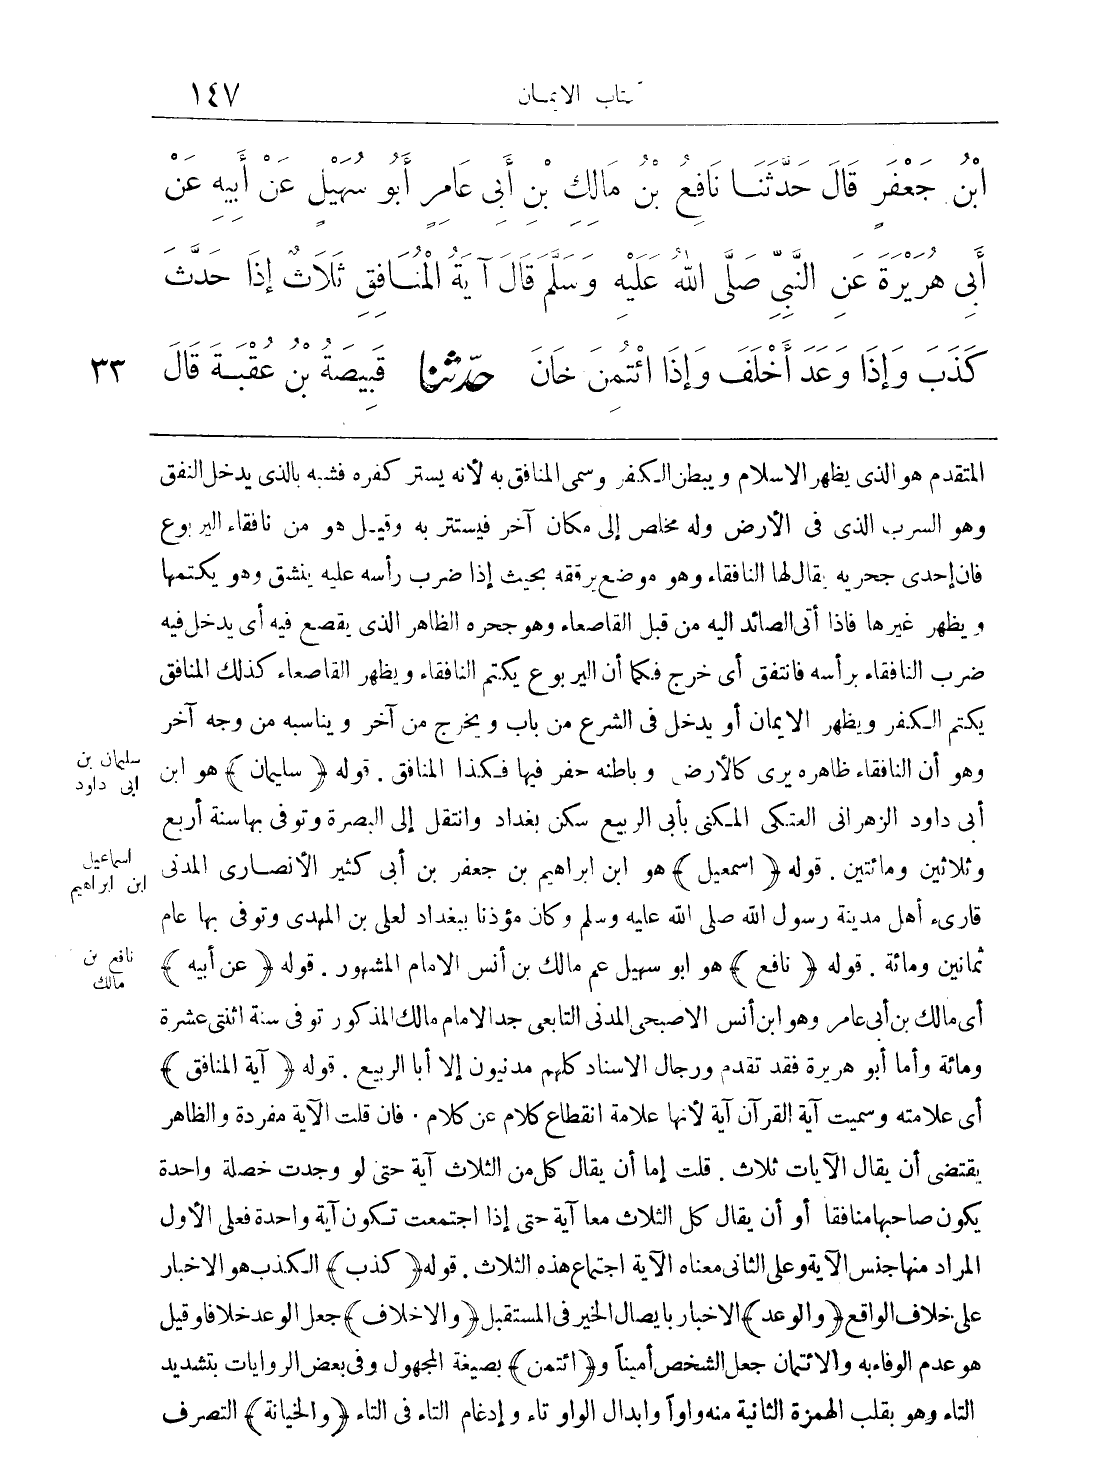 كتاب الايمان ١٤٧
ابْنُ جَعْفَرٍ قَالَ حَدَّثَنَا نَافِعُ بْنُ مَالِكِ بْنِ أَبِى عَامِرٍ أَبُو سُهَيْلٍ عَنْ أَبِيهِ عَنْ
أَبِى هُرَيْرَةَ عَنِ النَّبِىِّ صَلَّى اللهُ عَلَيْهِ وَسَلَّمَ قَالَ آيَةُ الْمُنَافِقِ ثَلَاثٌ إِذَا حَدَّثَ
كَذَبَ وَإِذَا وَعَدَ أَخْلَفَ وَإِذَا ائْتُمِنَ خَانَ حدّثنا قَبِيصَةُ بْنُ عُقْبَةَ قَالَ ٣٣
المتقدم هو الذى يظهر الاسلام ويبطن الكفر وسمى المنافق به لأنه يستر كفره فشبه بالذى يدخل النفق
وهو السرب الذى فى الأرض وله مخلص إلى مكان آخر فيستتر به وقيل هو من نافقاء اليربوع
فان إحدى جحريه يقال لها النافقاء وهو موضع يرققه بحيث إذا ضرب رأسه عليه ينشق وهو يكتمها
ويظهر غيرها فاذا أتى الصائد اليه من قبل القاصعاء وهو جحره الظاهر الذى يقصع فيه أى يدخل فيه
ضرب النافقاء برأسه فانتفق أى خرج فكما أن اليربوع يكتم النافقاء ويظهر القاصعاء كذلك المنافق
يكتم الكفر ويظهر الايمان أو يدخل فى الشرع من باب ويخرج من آخر ويناسبه من وجه آخر
وهو أن النافقاء ظاهره يرى كالأرض وباطنه حفر فيها فكذا المنافق . قوله ﴿ سليمان ﴾ هو ابن
سليمان بن
ابى داود
أبى داود الزهرانى العتكى المكنى بأبى الربيع سكن بغداد وانتقل إلى البصرة وتوفى بها سنة أربع
وثلاثين ومائتين . قوله ﴿ اسمعيل ﴾ هو ابن ابراهيم بن جعفر بن أبى كثير الأنصارى المدنى
اسماعيل
ابن ابراهيم
قارىء أهل مدينة رسول الله صلى الله عليه وسلم وكان مؤذنا ببغداد لعلى بن المهدى وتوفى بها عام
ثمانين ومائة . قوله ﴿ نافع ﴾ هو ابو سهيل عم مالك بن أنس الامام المشهور . قوله ﴿ عن أبيه ﴾
نافع بن
مالك
أى مالك بن أبى عامر وهو ابن أنس الاصبحى المدنى التابعى جد الامام مالك المذكور توفى سنة اثنتى عشرة
ومائة وأما أبو هريرة فقد تقدم ورجال الاسناد كلهم مدنيون إلا أبا الربيع . قوله ﴿ آية المنافق ﴾
أى علامته وسميت آية القرآن آية لأنها علامة انقطاع كلام عن كلام . فان قلت الآية مفردة والظاهر
يقتضى أن يقال الآيات ثلاث . قلت إما أن يقال كل من الثلاث آية حتى لو وجدت خصلة واحدة
يكون صاحبها منافقا أو أن يقال كل الثلاث معا آية حتى إذا اجتمعت تكون آية واحدة فعلى الأول
المراد منها جنس الآية وعلى الثانى معناه الآية اجتماع هذه الثلاث . قوله ﴿ كذب ﴾ الكذب هو الاخبار
على خلاف الواقع ﴿ والوعد ﴾ الاخبار بايصال الخير فى المستقبل ﴿ والاخلاف ﴾ جعل الوعد خلافا وقيل
هو عدم الوفاء به والائتمان جعل الشخص أميناً و ﴿ ائتمن ﴾ بصيغة المجهول وفى بعض الروايات بتشديد
التاء وهو بقلب الهمزة الثانية منه واواً وابدال الواو تاء وإدغام التاء فى التاء ﴿ والخيانة ﴾ التصرف